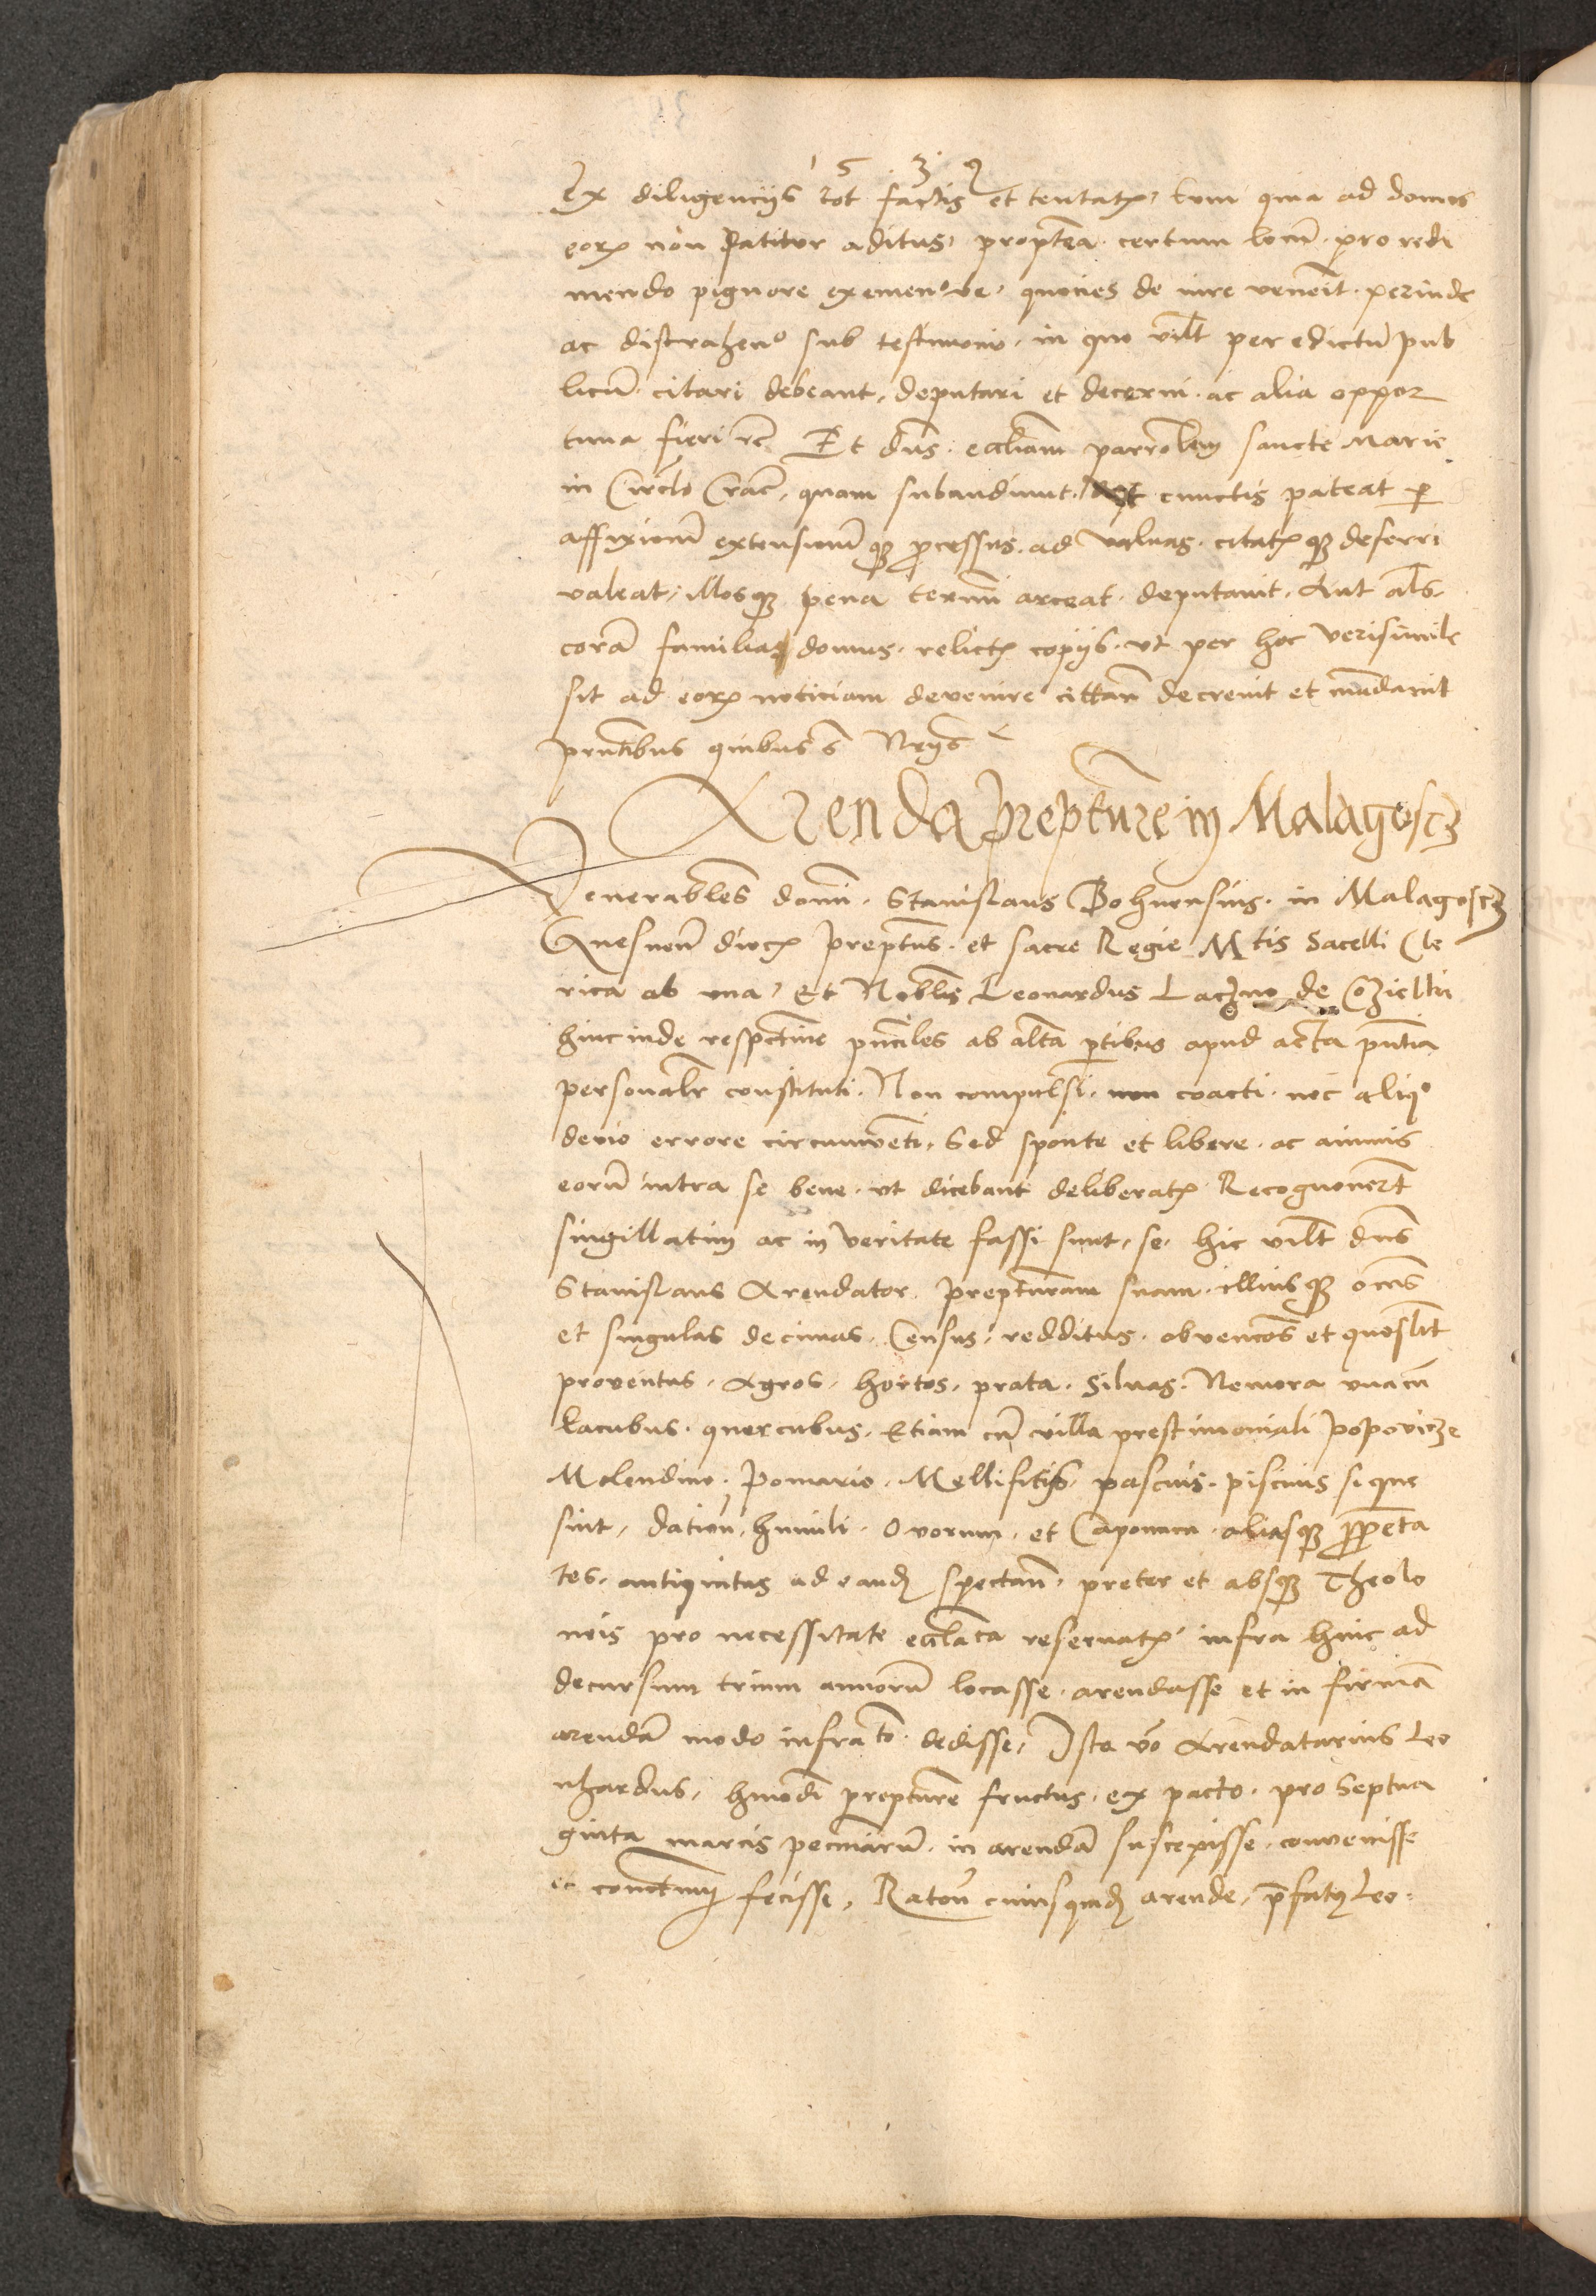 1 5 3 2
Ex diligencijs tot factis et tentatꝭ, tum quia ad domus
eorꝫ non patitur aditus, propterea certum locū pro redi
mendo pignore exemendove, quocies de iure venerit perinde
ac distrahendo sub testimonio, in quo vꝫlt per edictū pub
licū citari debeant, deputari et decerni ac alia oppor
tuna fieri rc Et dns eccliam parrolem sancte Marie
in Circlo Crac, quam subaudiunt, cunctis pateat per
affixionē extensionēqꝫ processus ad valuas citatꝭqꝫ deferri
valeat, illosqꝫ pena termini arceat deputauit. Aut als
corā familia domus relictꝭ copijs vt per hoc verisimile
sit ad eorꝫ noticiam devenire cittan decrevit et mandauit
pntibus quibus s Nrijs
Arenda Prepture in Malagoscz
Venerabiles domi Stanislaus Bohurinsius in Malagoscz
Gnesnen diocꝭ Preptus et sacre Regie Mtis Sacelli Cle
rica ab vna, Et Nobilis Leonardus Laczno de Coziellu
hinc inde respective pncipales ab alta ptibus apud acta pntia
personalr constituti Non compulsi non coacti nec aliqo
devio errore circumventi, Sed sponte et libere ac animis
eorū intra se bene vt dicebant deliberatꝭ Recognoverūt
singillatim ac in veritate fassi sunt, se hic vꝫlt dns
Stanislaus Arendator Prepturam suam illiusqꝫ omes
et singulas decimas Census, redditus obvencōes et quoslibt
proventus Agros, hortos, prata Siluas Nemora vnacū
Lacubus quercubus, Etiam cū villa prestimoniali Popovicze
Molendino Pomario Mellifitijs pascuis piscinis si que
sint, dation humili Ovorum et Caponum aliasqꝫ proprieta
tes antiquitus ad eandꝫ spectan preter et absqꝫ Theolo
neis pro necessitate eccliastica reseruatꝭ infra hinc ad
decursum trium annorū locasse arendasse et in firmā
arendā modo infrascto dedisse, Iste vō Arendatarius Leo
nhardus, hmōdi prepture fructus ex pacto pro Septua
ginta marcis pecuniarū in arendā suscepisse convenisse
et contctum fecisse, Raton cuiusquidꝫ arende, prefatꝰ Leo: